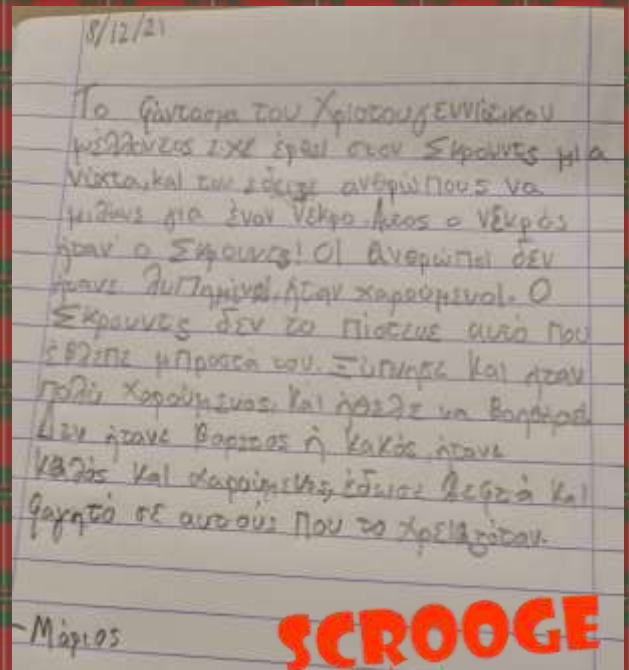 8/12/21
Το φάντασμα του Χριστουγεννιάτικου
μέλλοντος είχε έρθει στον Σκρουντς μια
νύχτα και του έδειξε ανθρώπους να
μιλάνε για έναν νέκρο. Αυτος ο νέκρος
ήταν ο Σκρουντς! Οι ανθρώποι δεν
ήτανε λυπημένοι, ήταν χαρούμενοι. Ο
Σκρουντς δεν το πίστευε αυτό που
έβλεπε μπροστά του. Ξύπνησε και ήταν
πολύ χαρούμενος, και ήθελε να βοηθήσει.
Δεν ήτανε βαρετος ή κακός, ήτανε
καλός και χαρούμενος, έδωσε λεφτά και
φαγητό σε αυτούς που το χρειαζόταν.
-Μάριος
SCROOGE